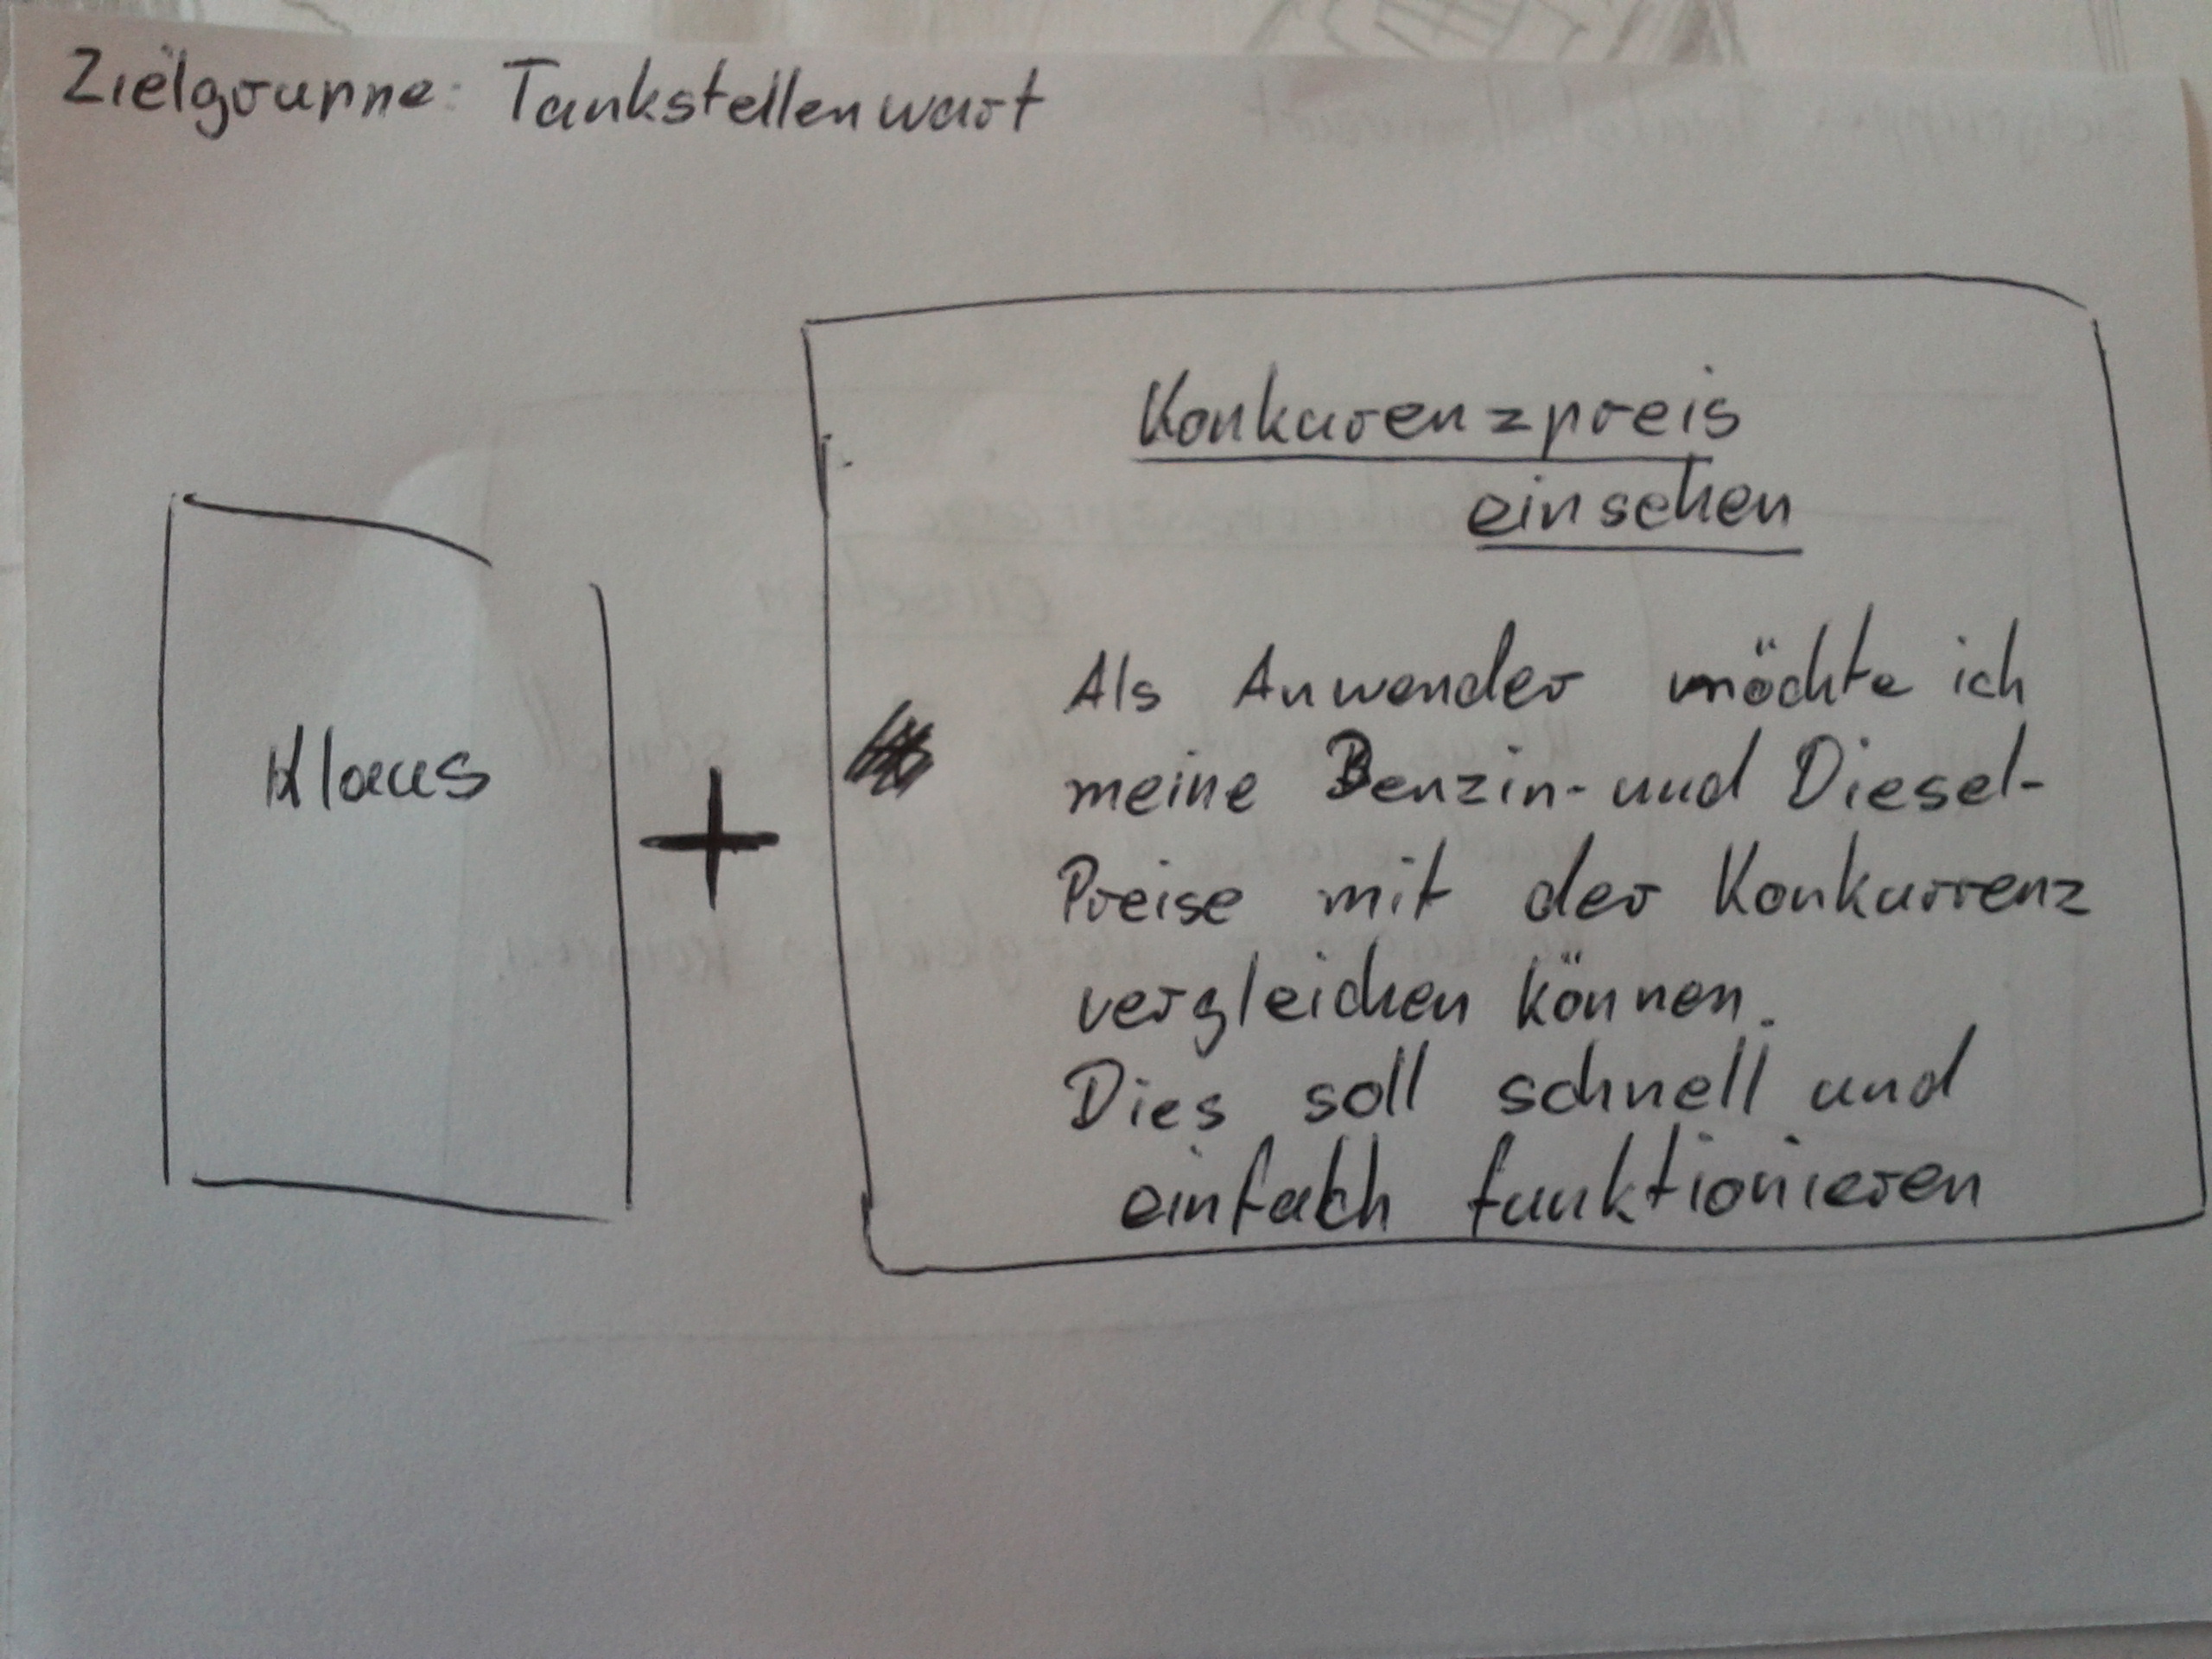 Zielgruppe: Tankstellenwart
Klaus
+
Konkurenzpreis
einsehen
Als Anwender möchte ich
meine Benzin- und Diesel-
Preise mit der Konkurrenz
vergleichen können.
Dies soll schnell und
einfach funktionieren